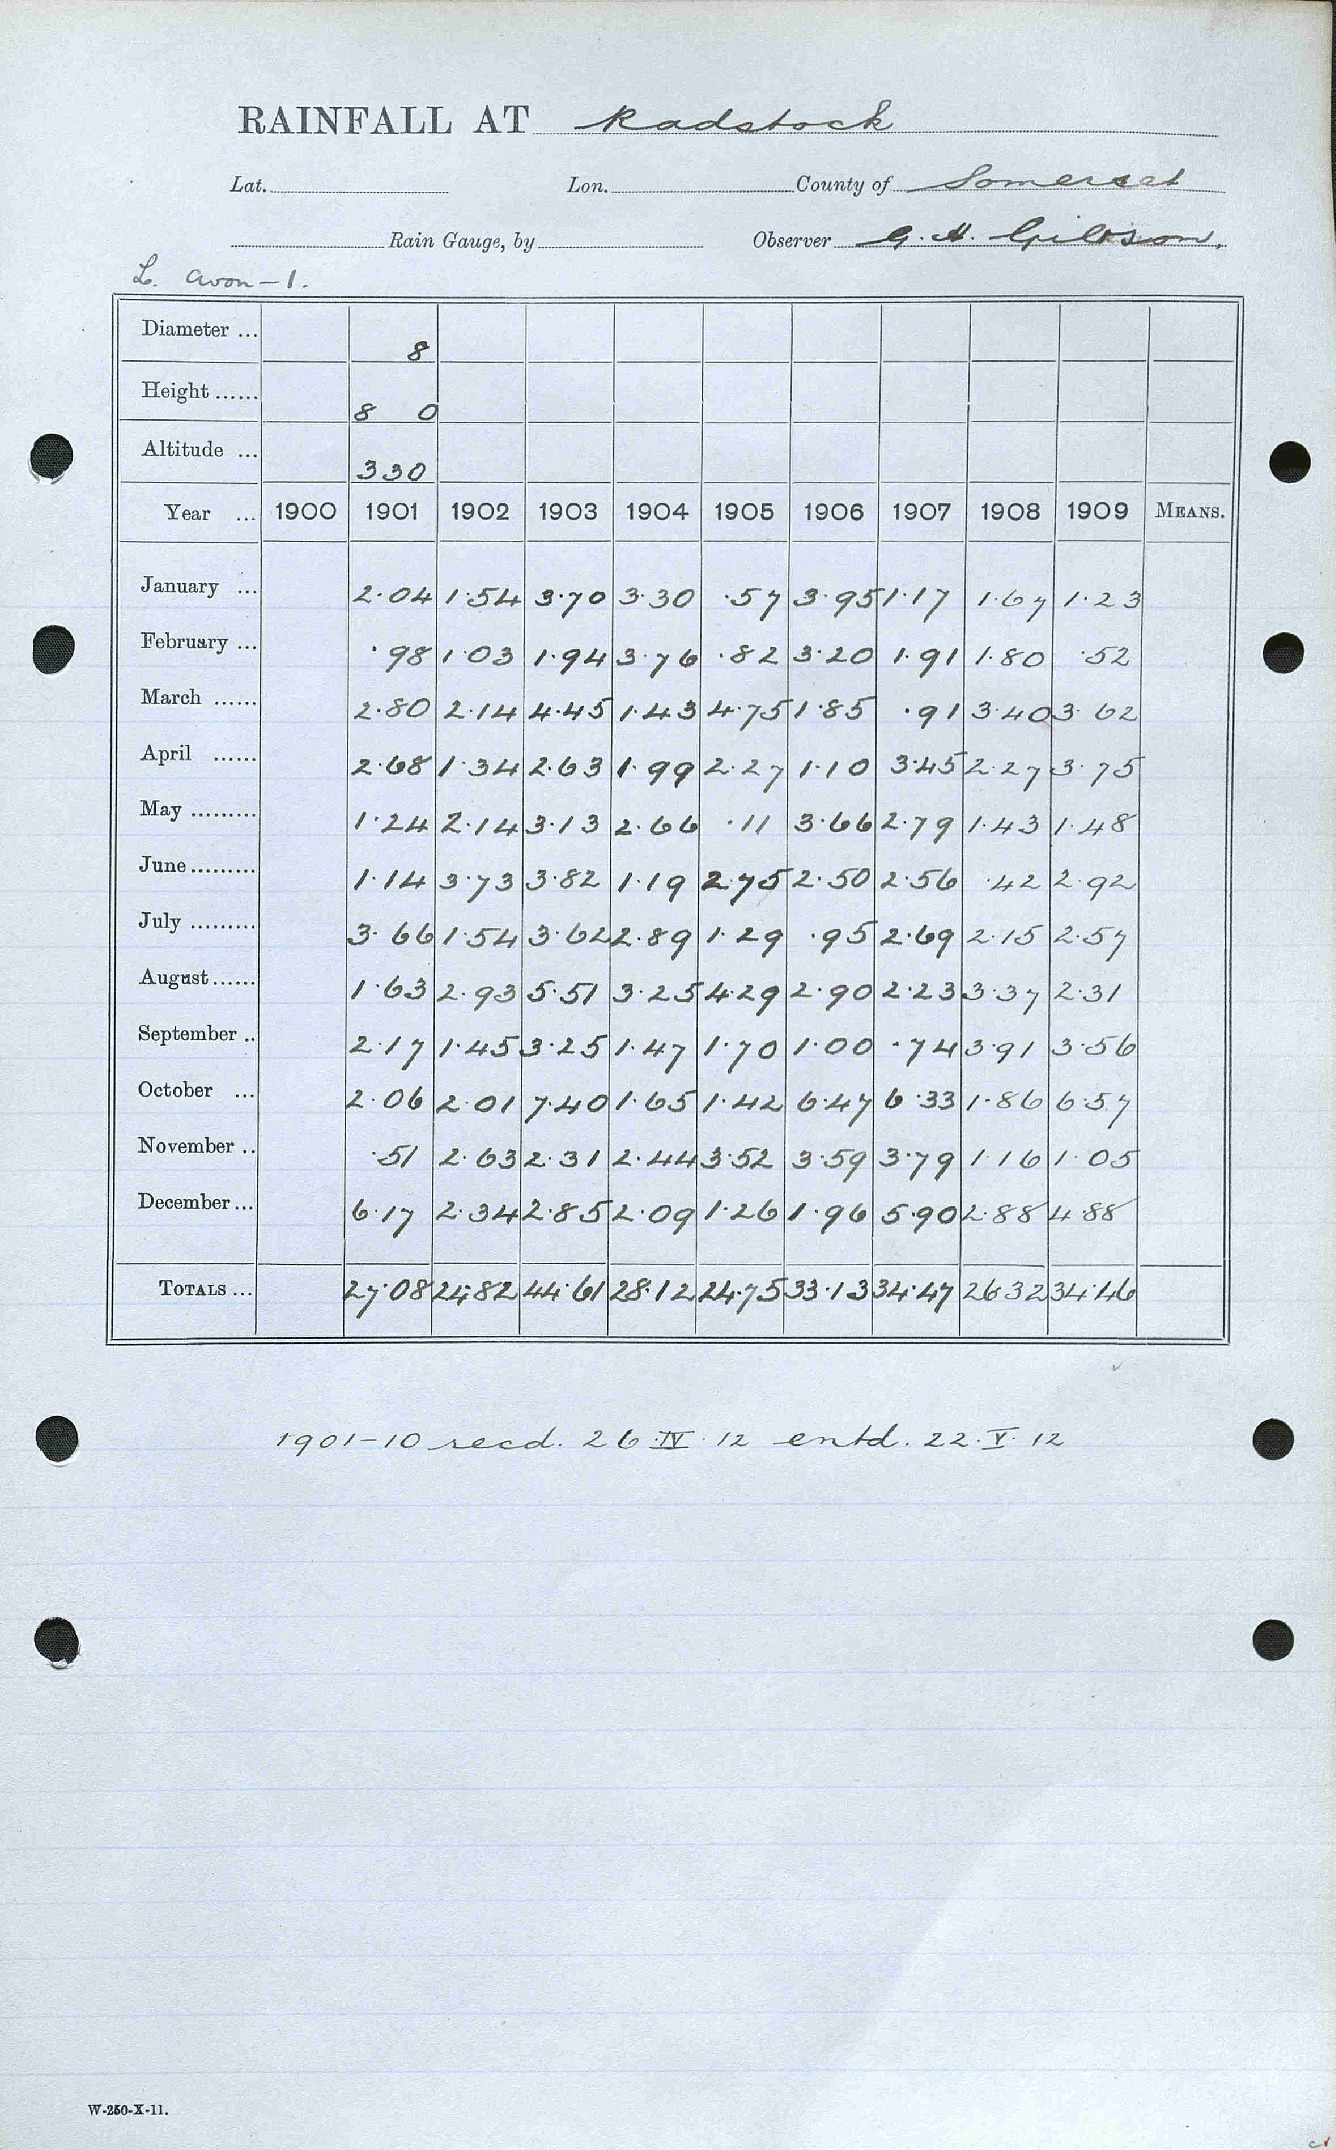 RAINFALL AT Radstock
Lat. Lon. County of Somerset
Rain Gauge, by Observer G. H. Gibson.
L. Avon - 1.
Diameter ... 8
Height ...... 8 0
Altitude ... 330
Year ... 1900 1901 1902 1903 1904 1905 1906 1907 1908 1909 MEANS.
January ... 2.04 1.54 3.70 3.30 .57 3.95 1.17 1.67 1.23
February ... .98 1.03 1.94 3.76 .82 3.20 1.91 1.80 .52
March ...... 2.80 2.14 4.45 1.43 4.75 1.85 .91 3.40 3.62
April ...... 2.68 1.34 2.63 1.99 2.27 1.10 3.45 2.27 3.75
May ......... 1.24 2.14 3.13 2.66 .11 3.66 2.79 1.43 1.48
June ......... 1.14 3.73 3.82 1.19 2.75 2.50 2.56 .42 2.92
July ......... 3.66 1.54 3.62 2.89 1.29 .95 2.69 2.15 2.57
August ...... 1.63 2.93 5.51 3.25 4.29 2.90 2.23 3.37 2.31
September .. 2.17 1.45 3.25 1.47 1.70 1.00 .74 3.91 3.56
October ... 2.06 2.01 7.40 1.65 1.42 6.47 6.33 1.86 6.57
November .. .51 2.63 2.31 2.44 3.52 3.59 3.79 1.16 1.05
December ... 6.17 2.34 2.85 2.09 1.26 1.96 5.90 2.88 4.88
TOTALS ... 27.08 24.82 44.61 28.12 24.75 33.13 34.47 26.32 34.46
1901-10 recd. 26.IV.12 entd. 22.V.12
W-250-X-11.